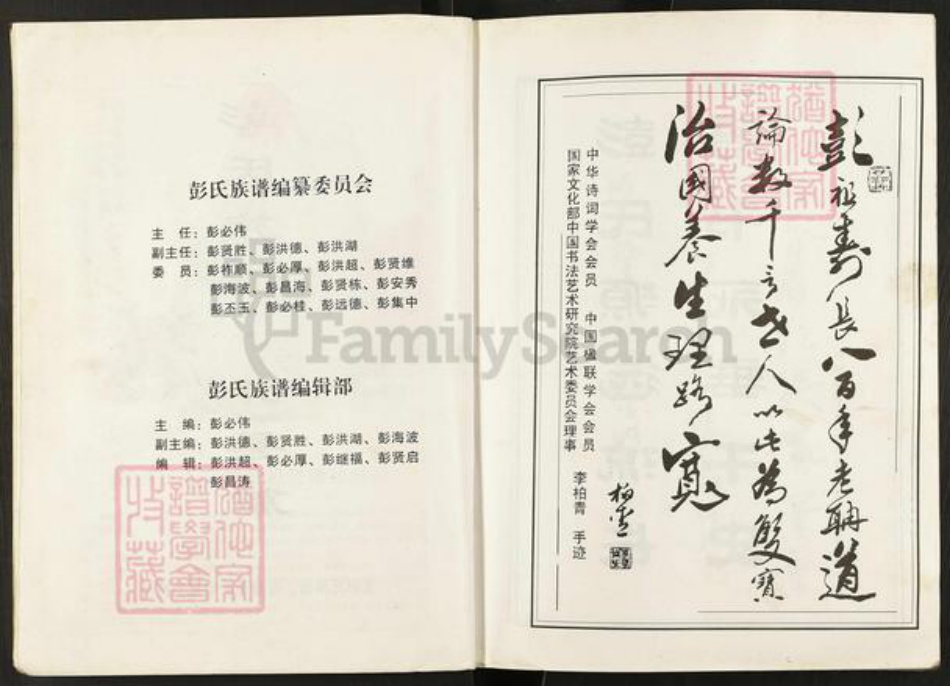 彭氏族谱编纂委员会
主　任：彭必伟
副主任：彭贤胜、彭洪德、彭洪湖
委　员：彭祚顺、彭必厚、彭洪超、彭贤维
彭海波、彭昌海、彭贤栋、彭安秀
彭丕玉、彭必桂、彭远德、彭集中
彭氏族谱编辑部
主　编：彭必伟
副主编：彭洪德、彭贤胜、彭洪湖、彭海波
编　辑：彭洪超、彭必厚、彭继福、彭贤启
彭昌涛
彭祖寿长八百年老聃道
論数千言世人以此為雙寶
治國養生理路寬
柏青
中华诗词学会会员　中国楹联学会会员
国家文化部中国书法艺术研究院艺术委员会理事
李柏青　手迹
FamilySearch